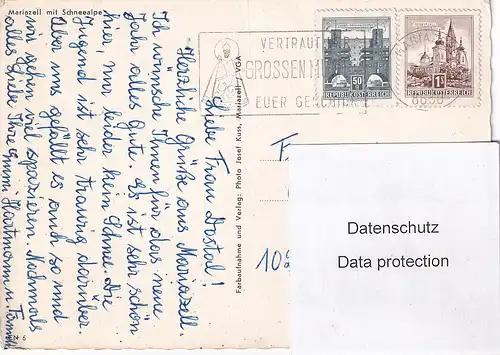 Mariazell mit Schneealpe
Liebe Frau Dostal!
Herzliche Grüße aus Mariazell.
Ich wünsche Ihnen für das neue
Jahr alles Gute. Es ist sehr schön
hier, nur leider kein Schnee. Die
Jugend ist sehr traurig darüber.
Aber uns gefällt es auch so und
wir gehen viel spazieren. Nochmals
alles Liebe Ihre Emmi Hartmann u. Familie
Farbaufnahme und Verlag: Photo Josef Kuss, Mariazell - VGA
VERTRAUT
GROSSEN
EUER
50
REPUBLIK ÖSTERREICH
1S
REPUBLIK ÖSTERREICH
8630
F
10
Datenschutz
Data protection
6